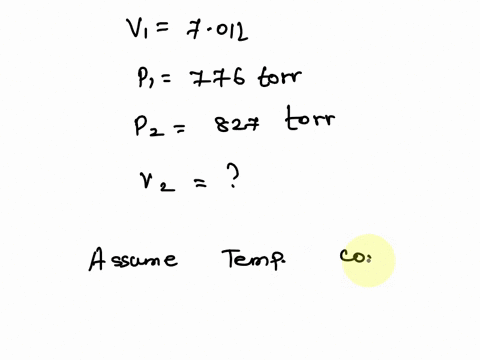 V1 = 7.012
P1 = 776 torr
P2 = 827 torr
V2 = ?
Assume Temp. co